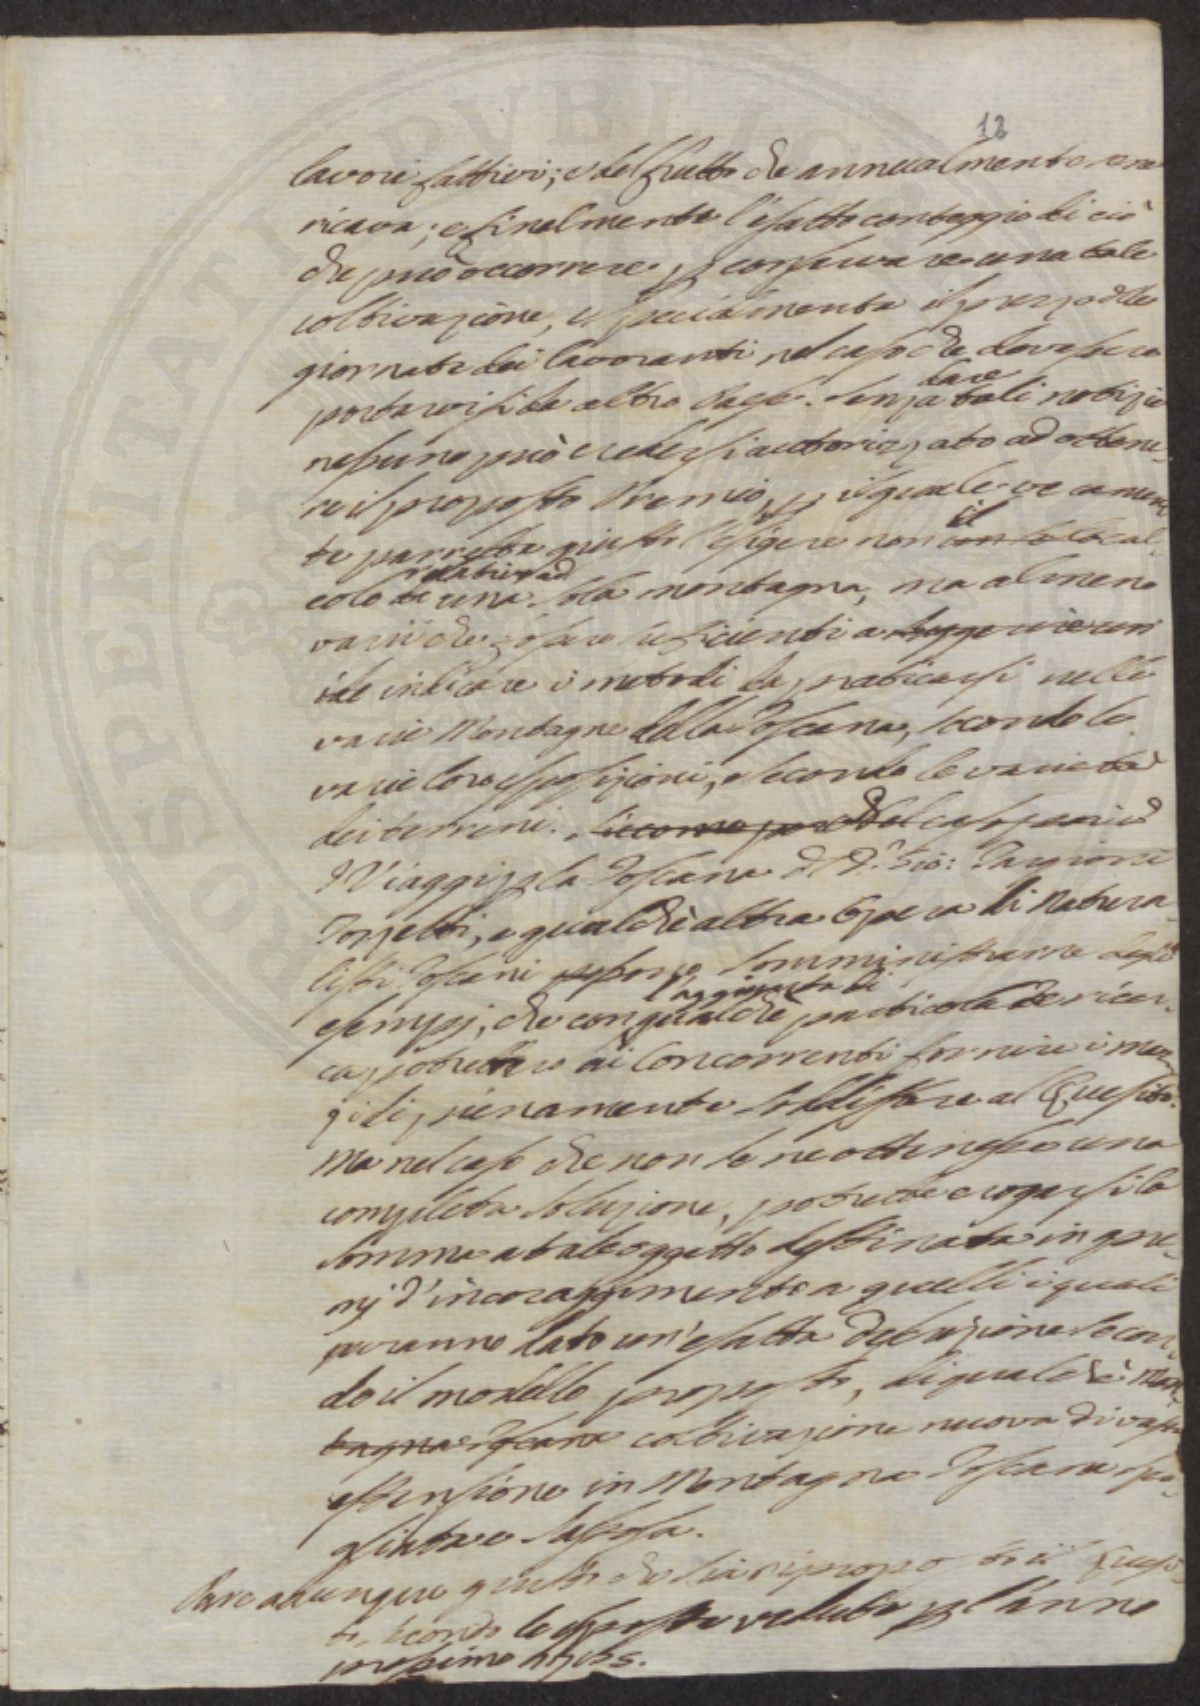 12
lavori fattivi; e del frutto che annualmente se ne
ricava; e finalmente l'esatto conteggio di ciò
che può occorrere p conservare una tale
coltivazione, e specialmente il prezzo delle
giornate dei lavoranti nel caso che dovessero
portarvisi da altro Paese. Senza tali notizie
nessuno può credersi autorizzato ad ottene-
re il proposto Premio, p il quale veramen-
te parrebbe giusto l'esigere non il cal-
colo relativo ad una sola montagna, ma almeno
varii che sufficienti a
indicare i metodi da praticarsi nelle
varie Montagne della Toscana, secondo le
varie loro esposizioni, e secondo le varietà
dei terreni. Siccome però
I Viaggi p la Toscana d D.r Gio: Targioni
Tozzetti, e qualche altra Opera di Natura-
listi Toscani posson somministrarne degli
esempj, che con qualche aggiunta di particolare ricer-
ca potrebbero ai Concorrenti fornire i mez-
zi di pienamente soddisfare al Quesito.
Ma nel caso che non se ne ottengsse una
completa soluzione, potrebbe erogarsi la
somma a tale oggetto destinata in pre-
mj d'incoraggimento a quelli i quali
avranno dato un'esatta descrizione secon-
do il modello proposto, di qualche Mon-
tagna Toscana coltivazione nuova di vasta
estensione in Montagna Toscana spo-
gliata e sassosa.
Pare adunque giusto che sia riproposto il Quesi-
to, secondo le esposte vedute p l'anno
prossimo